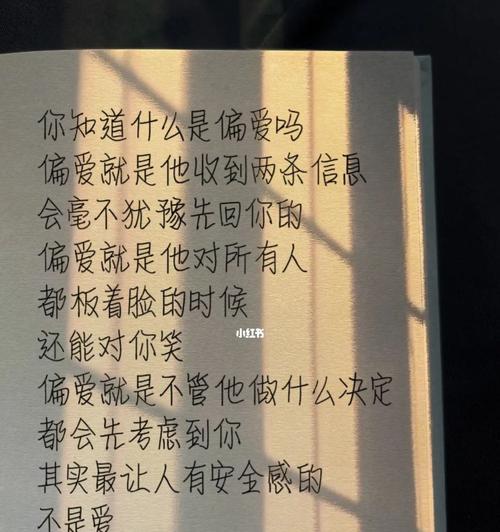 你知道什么是偏爱吗
偏爱就是他收到两条信息
会毫不犹豫先回你的
偏爱就是他对所有人
都板着脸的时候
小红书
还能对你笑
偏爱就是不管他做什么决定
都会先考虑到你
其实最让人有安全感的
不是爱